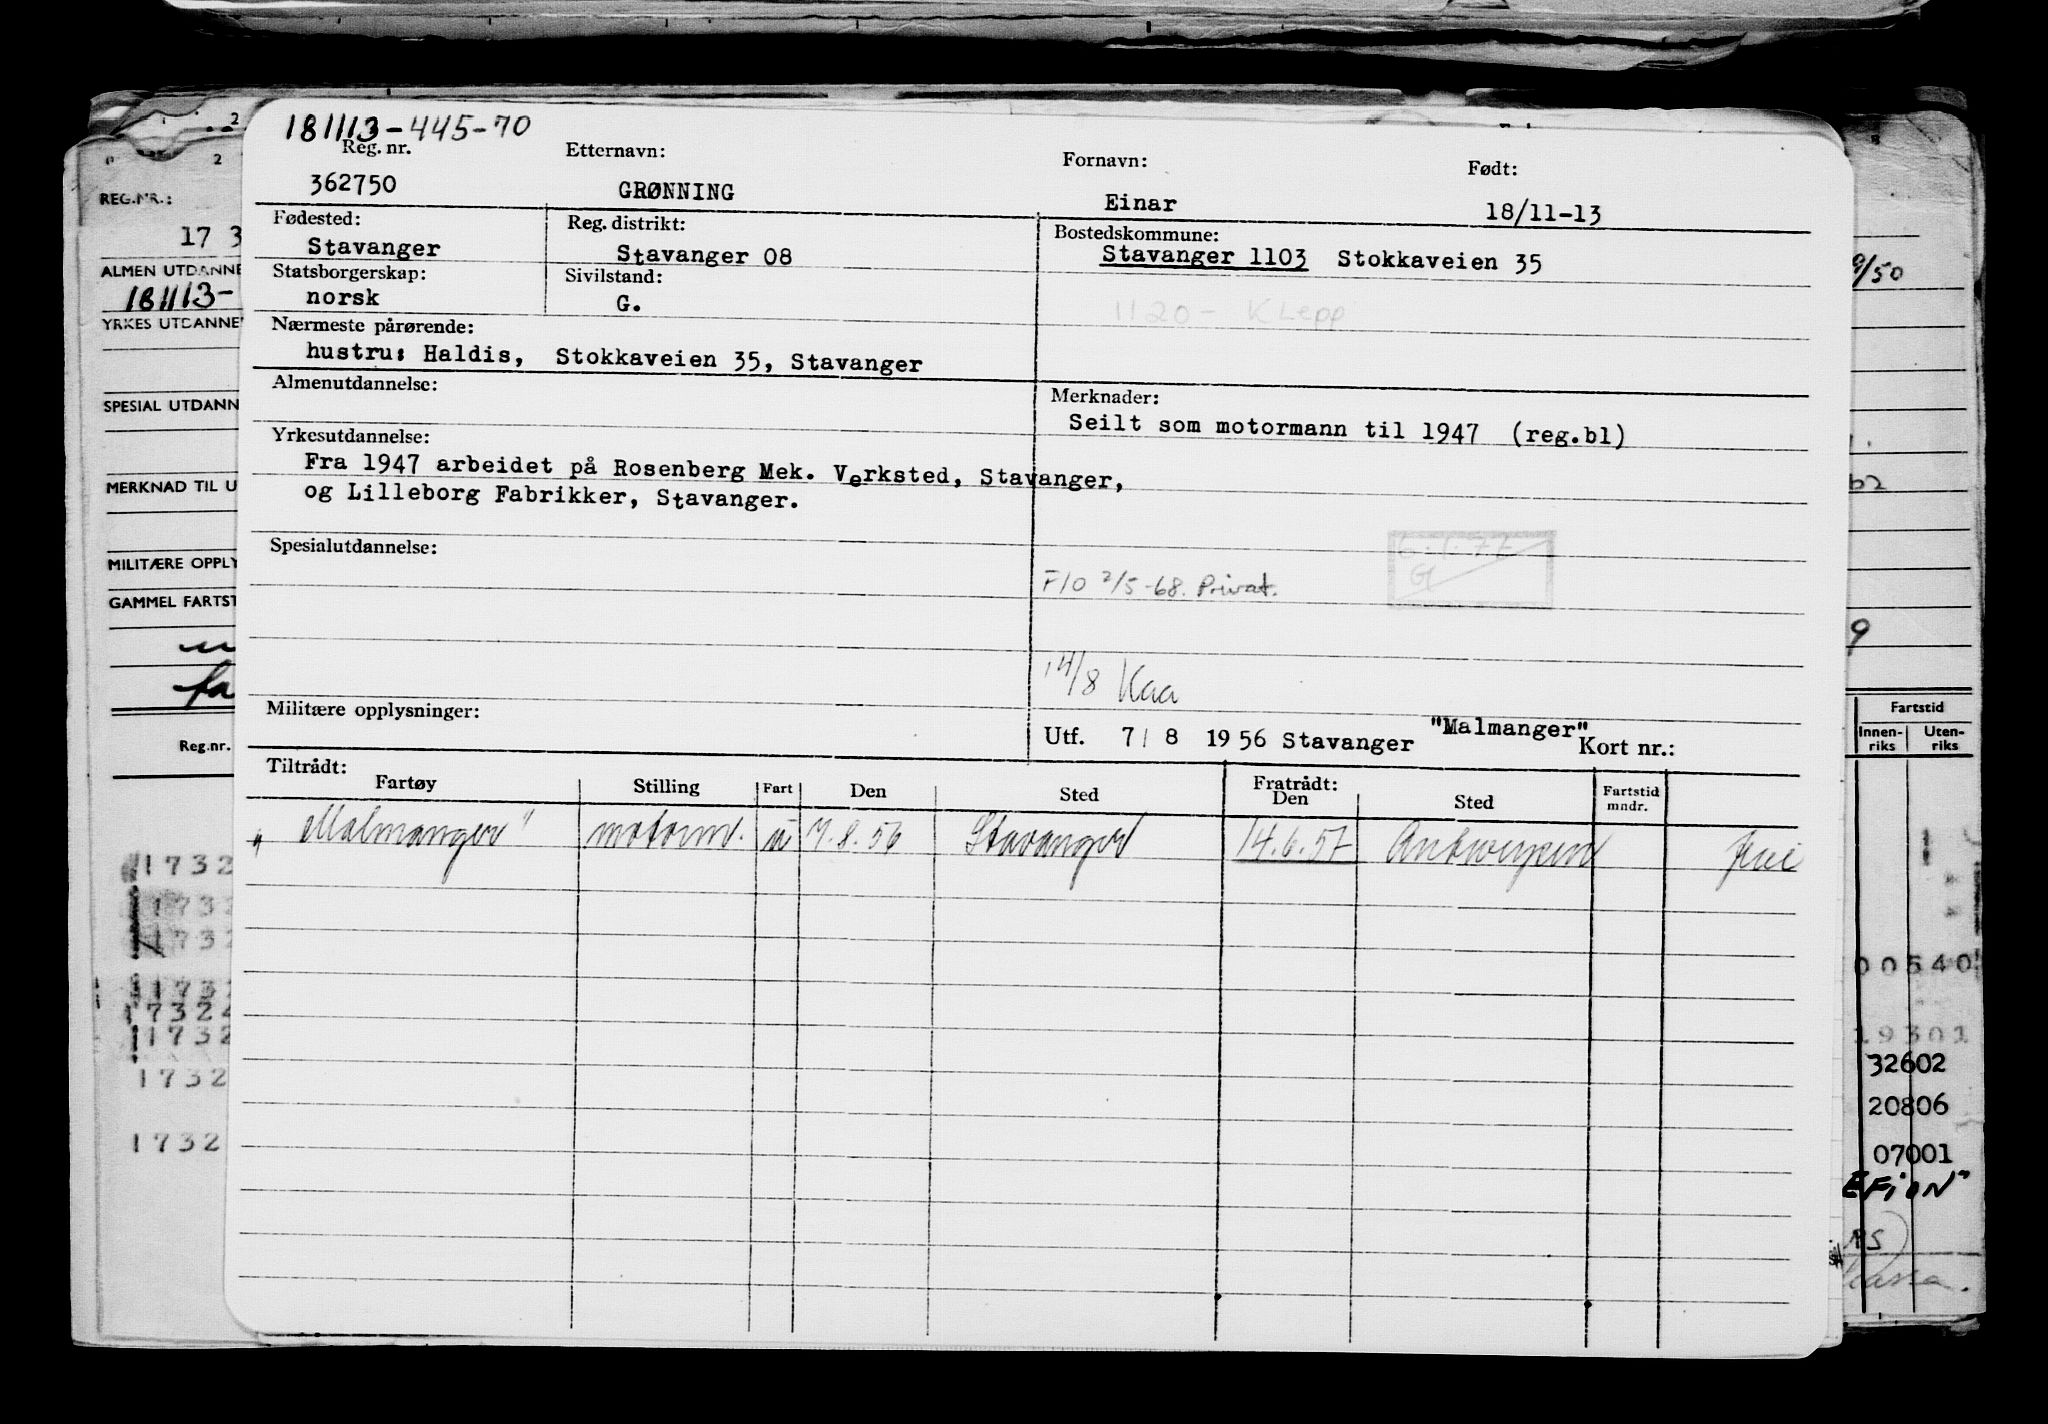 181113-445-70
Reg. nr. Etternavn: Fornavn: Født:
362750 GRØNNING Einar 18/11-13
Fødested: Reg. distrikt: Bostedskommune:
Stavanger Stavanger 08 Stavanger 1103 Stokkaveien 35
Statsborgerskap: Sivilstand:
norsk G. 1120 - Klepp
Nærmeste pårørende:
hustru: Haldis, Stokkaveien 35, Stavanger
Almenutdannelse: Merknader:
Seilt som motormann til 1947 (reg.bl)
Yrkesutdannelse:
Fra 1947 arbeidet på Rosenberg Mek. Verksted, Stavanger,
og Lilleborg Fabrikker, Stavanger.
Spesialutdannelse:
F10 2/5-68. Privat.
14/8 Kaa
Militære opplysninger:
Utf. 7/8 1956 Stavanger "Malmanger" Kort nr.:
Tiltrådt: Fratrådt:
Fartøy Stilling Fart Den Sted Den Sted Fartstid mndr.
"Malmanger" motorm. u 7.8.56 Stavanger 14.6.57 Antwerpen
REG.NR.:
17 3
ALMEN UTDANNE
181113-
YRKES UTDANNE
SPESIAL UTDANN
MERKNAD TIL U
MILITÆRE OPPLY
GAMMEL FARTST
fa
Reg.nr.
1732
1732
1732
1732
1732
1732
1732
1732
9/50
62
9
Fartstid
Innen-riks Uten-riks
00540
19301
32602
20806
07001
EFION"